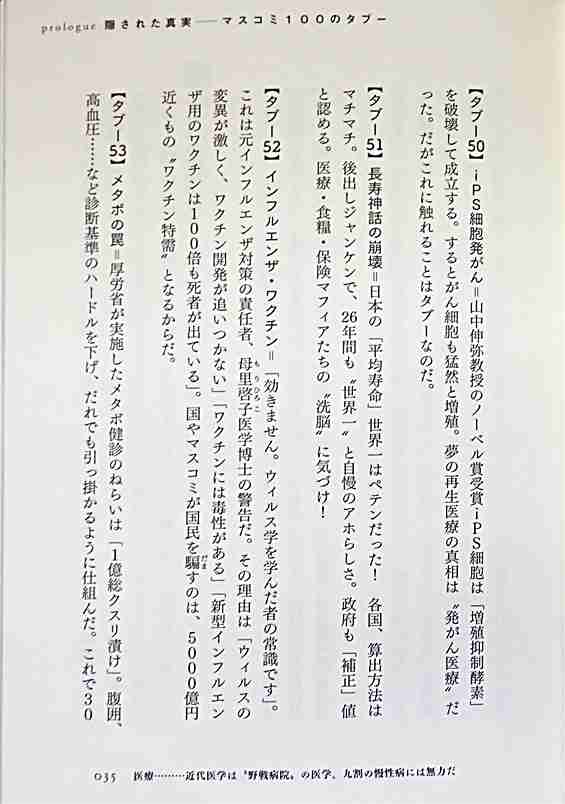 prologue 隠された真実――マスコミ100のタブー
【タブー50】iPS細胞発がん＝山中伸弥教授のノーベル賞受賞iPS細胞は「増殖抑制酵素」
を破壊して成立する。するとがん細胞も猛然と増殖。夢の再生医療の真相は〝発がん医療〟だ
った。だがこれに触れることはタブーなのだ。
【タブー51】長寿神話の崩壊＝日本の「平均寿命」世界一はペテンだった！　各国、算出方法は
マチマチ。後出しジャンケンで、26年間も〝世界一〟と自慢のアホらしさ。政府も「補正」値
と認める。医療・食糧・保険マフィアたちの〝洗脳〟に気づけ！
【タブー52】インフルエンザ・ワクチン＝「効きません。ウィルス学を学んだ者の常識です」。
これは元インフルエンザ対策の責任者、母里啓子医学博士の警告だ。その理由は「ウィルスの
もりひろこ
変異が激しく、ワクチン開発が追いつかない」「ワクチンには毒性がある」「新型インフルエン
ザ用のワクチンは100倍も死者が出ている」。国やマスコミが国民を騙すのは、5000億円
だま
近くもの〝ワクチン特需〟となるからだ。
【タブー53】メタボの罠＝厚労省が実施したメタボ健診のねらいは「1億総クスリ漬け」。腹囲、
高血圧……など診断基準のハードルを下げ、だれでも引っ掛かるように仕組んだ。これで30
035 医療………近代医学は〝野戦病院〟の医学、九割の慢性病には無力だ